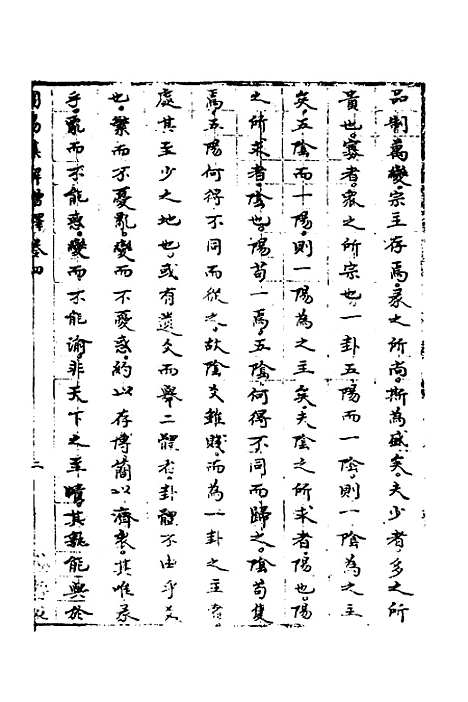 品制萬變宗主存焉衆之所尚斯為盛矣夫少者多之所
貴也寡者衆之所宗也一卦五陽而一陰則一陰為之主
矣五陰而一陽則一陽為之主矣夫陰之所求者陽也陽
之所求者陰也陽苟一焉五陰何得不同而歸之陰苟隻
焉五陽何得不同而從之故陰爻雖賤而為一卦之主者
處其至少之地也或有遺爻而舉二體者卦體不由乎爻
也繁而不憂亂變而不憂惑約以存博簡以濟衆其唯彖
乎亂而不能惑變而不能渝非天下之至賾其孰能與於
周易集解增釋卷四
二